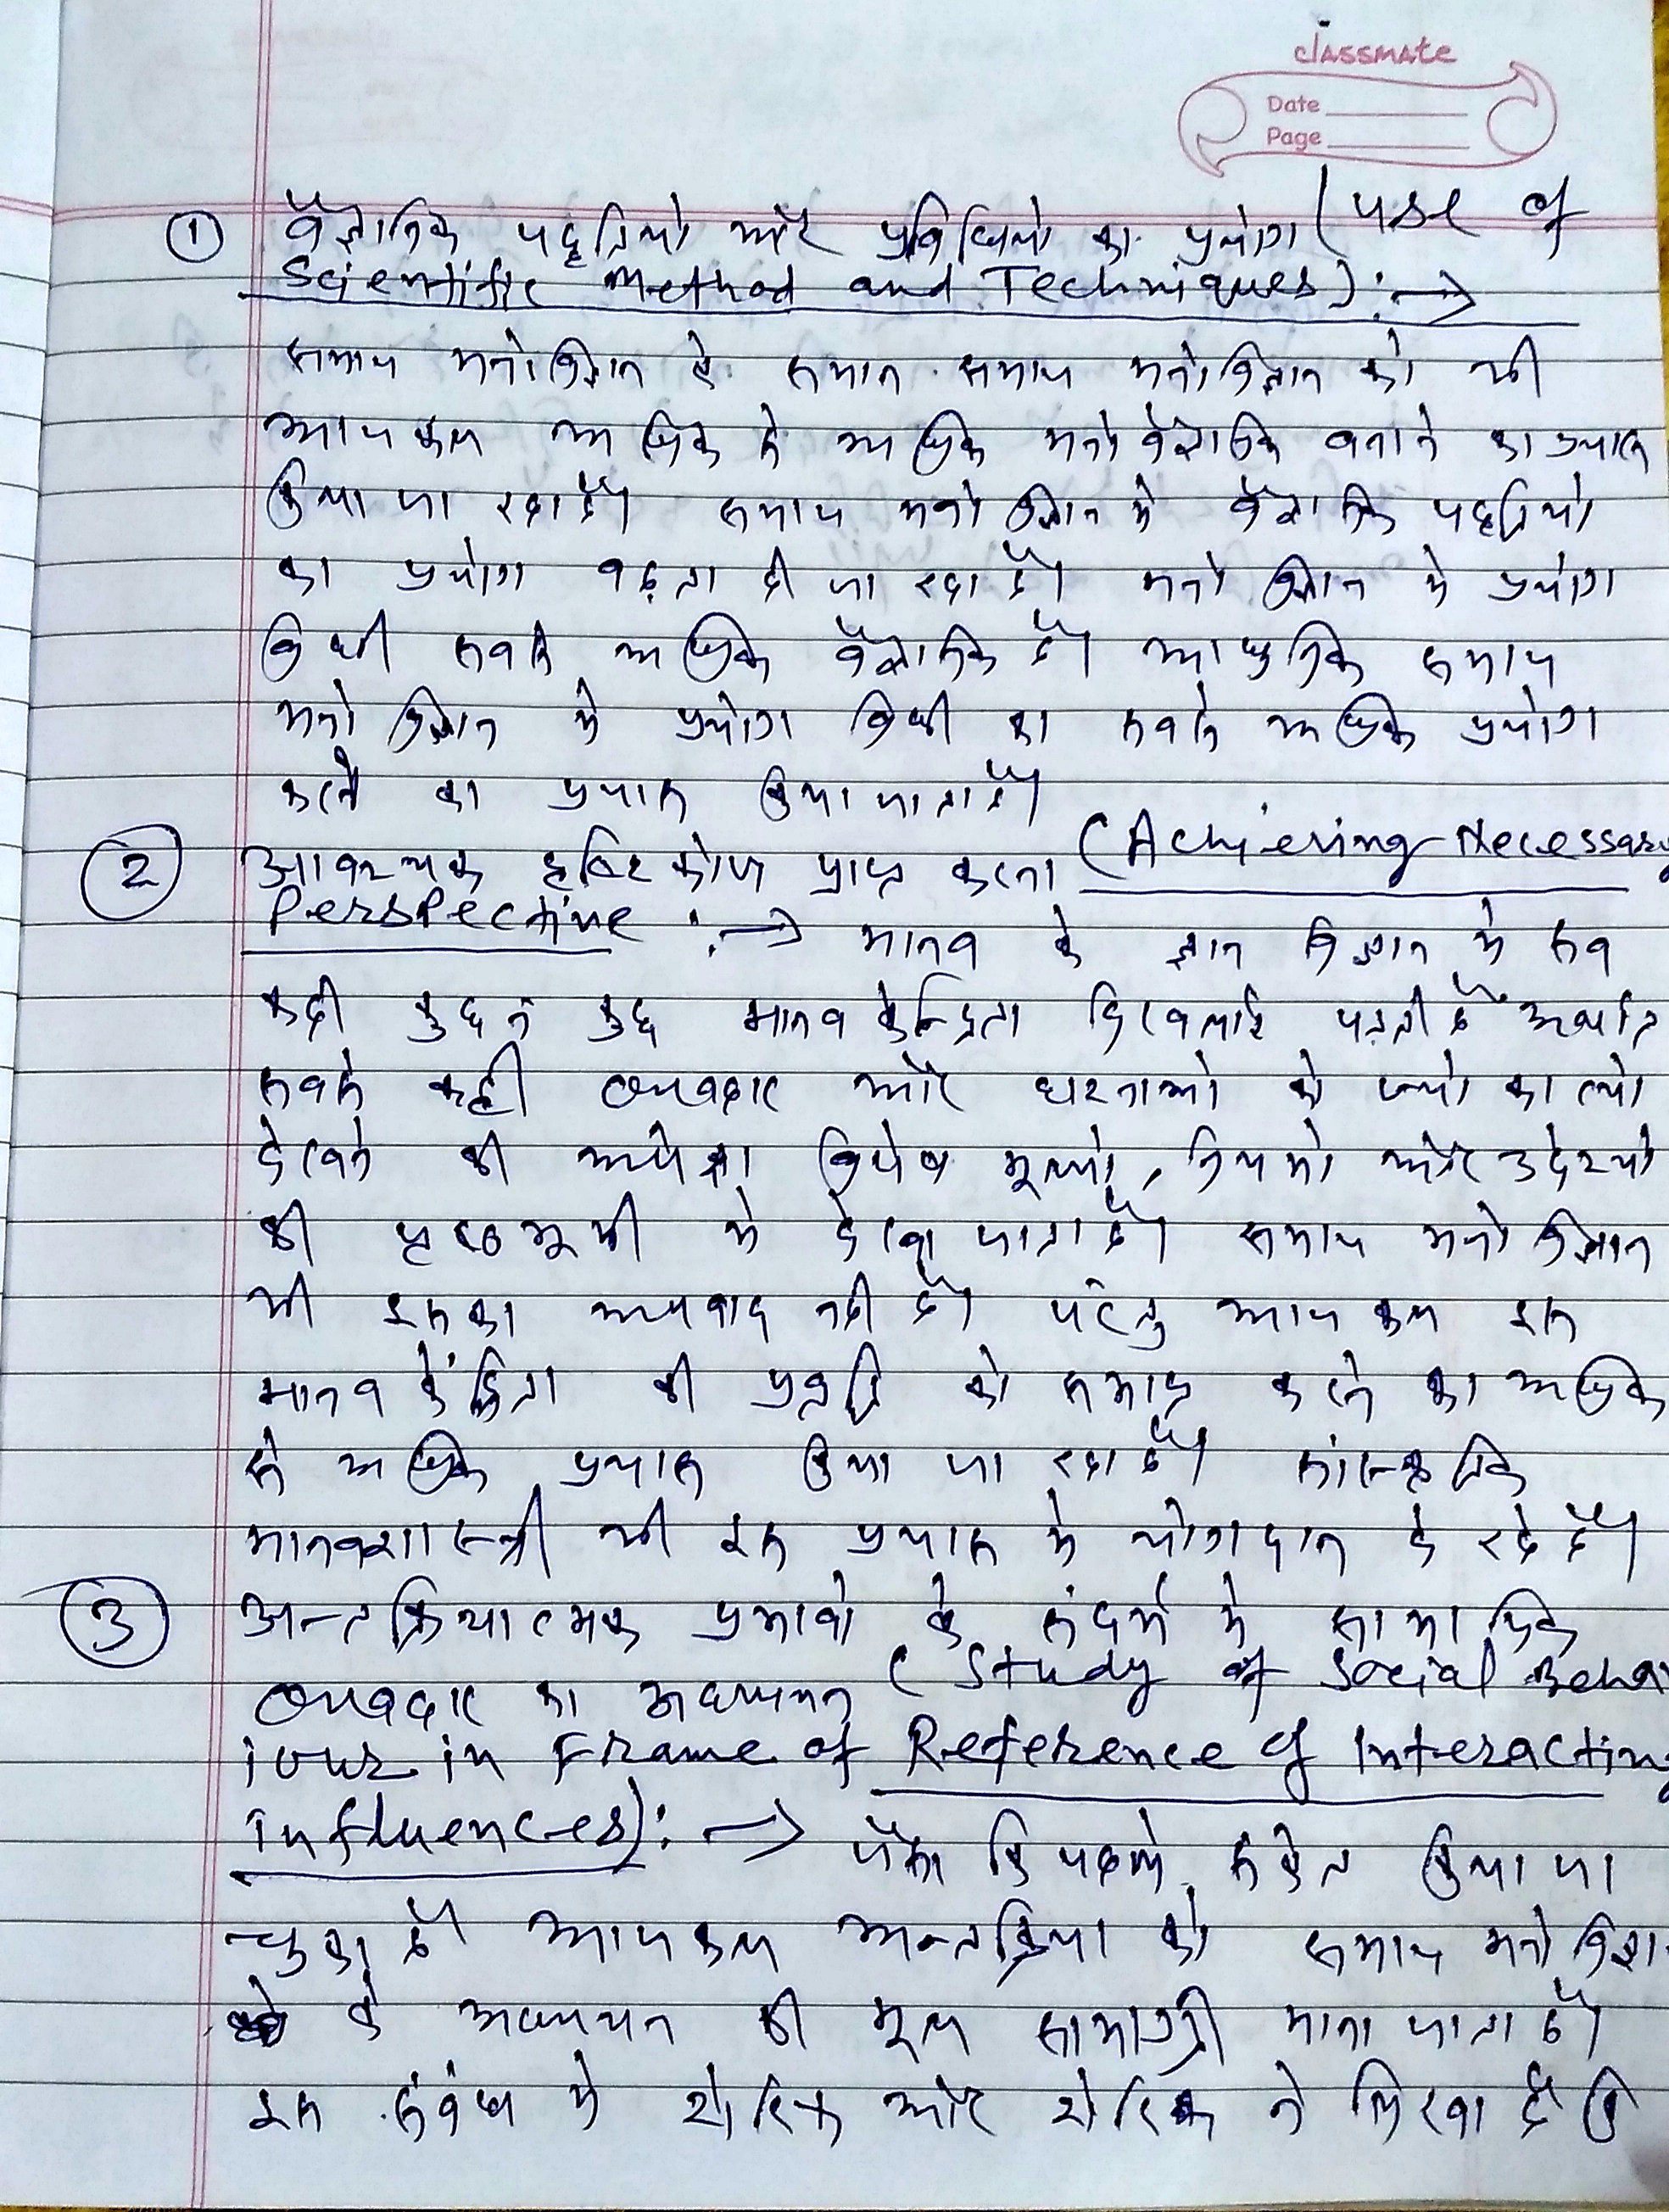 classmate
Date
Page
① वैज्ञानिक पद्धतियो और प्रविधियो का प्रयोग (use of
Scientific Method and Techniques) :→
समाज मनोविज्ञान के समान समाज मनोविज्ञान को भी
आजकल अधिक से अधिक मनोवैज्ञानिक बनाने का प्रयास
किया जा रहा है। समाज मनोविज्ञान मे वैज्ञानिक पद्धतियो
का प्रयोग बढ़ता ही जा रहा है। मनोविज्ञान मे प्रयोग
विधी सबसे अधिक वैज्ञानिक है। आधुनिक समाज
मनोविज्ञान मे प्रयोग विधी का सबसे अधिक प्रयोग
करने का प्रयास किया जाता है।
② आवश्यक दृष्टिकोण प्राप्त करना (Achiering Necessary
Perspective :→ मानव के ज्ञान विज्ञान मे सब
कही कुछ न कुछ मानव केन्द्रिता दिखलाई पड़ती है अर्थात
सबसे कही व्यवहार और घटनाओ को ज्यो का त्यो
देखने की अपेक्षा विशेष मूल्यो, नियमो और उदेश्यो
की पृष्ठभूमी मे देखा जाता है। समाज मनोविज्ञान
भी इसका अपवाद नही है। परंतु आजकल इस
मानव केंद्रिता की प्रवृति को समाप्त करने का अधिक
से अधिक प्रयास किया जा रहा है। सांस्कृतिक
मानवशास्त्री भी इस प्रयास मे योगदान दे रहे है।
③ अन्तक्रियात्मक प्रभावो के संदर्भ मे सामाजिक
व्यवहार का अध्ययन (Study of Social Behav
iour in Frame of Reference of Interacting
influences) :→ जैसा कि पहले संकेत किया जा
चुका है आजकल अन्तक्रिया को समाज मनोविज्ञा
के अध्ययन की मूल सामाग्री माना जाता है।
इस संबंध मे शेरिफ और शेरिफ ने लिखा है कि